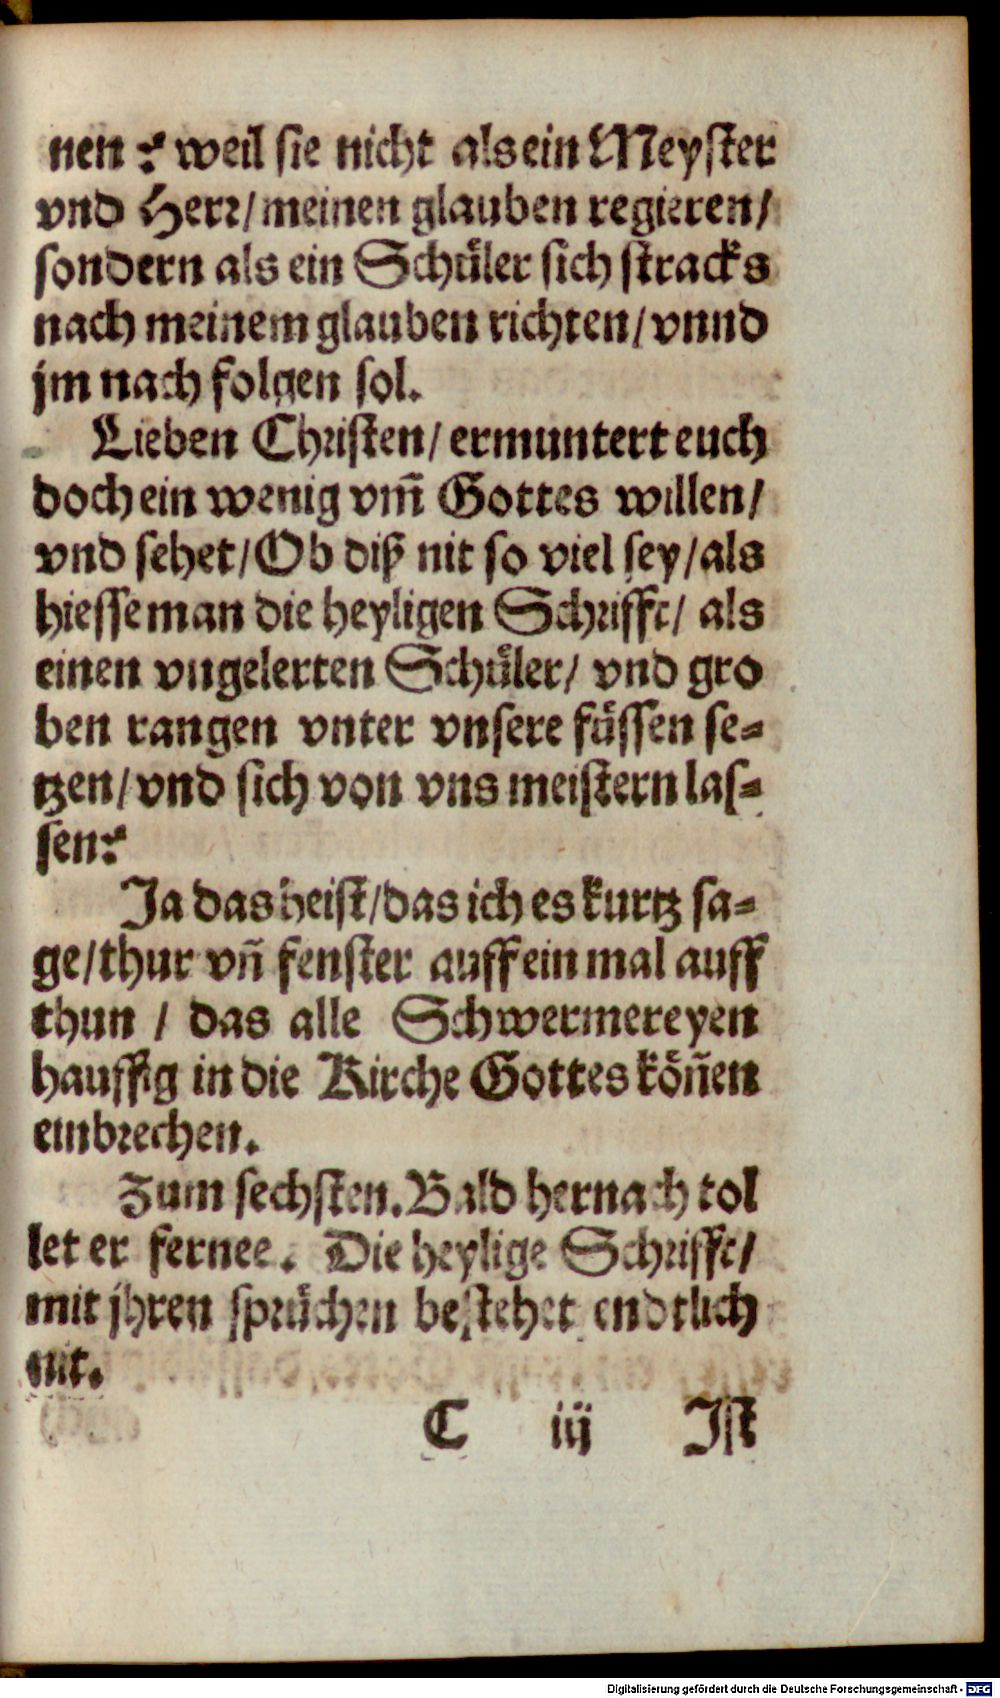 nen? weil sie nicht als ein Meyster
vnd Herr/ meinen glauben regieren/
sondern als ein Schuͤler sich stracks
nach meinem glauben richten/ vnnd
jm nach folgen sol.
Lieben Christen/ ermuntert euch
doch ein wenig vm̃ Gottes willen/
vnd sehet/ Ob diß nit so viel sey/ als
hiesse man die heyligen Schrifft/ als
einen vngelerten Schuͤler/ vnd gro
ben rangen vnter vnsere fuͤssen se=
tzen/ vnd sich von vns meistern las=
sen?
Ja das heist/ das ich es kurtz sa=
ge/ thur vñ fenster auff ein mal auff
thun / das alle Schwermereyen
hauffig in die Kirche Gottes koͤñen
einbrechen.
Zum sechsten. Bald hernach tol
let er fernee. Die heylige Schrifft/
mit jhren spruͤchen bestehet endtlich
nit.
C iij Ist
Digitalisierung gefördert durch die Deutsche Forschungsgemeinschaft - DFG